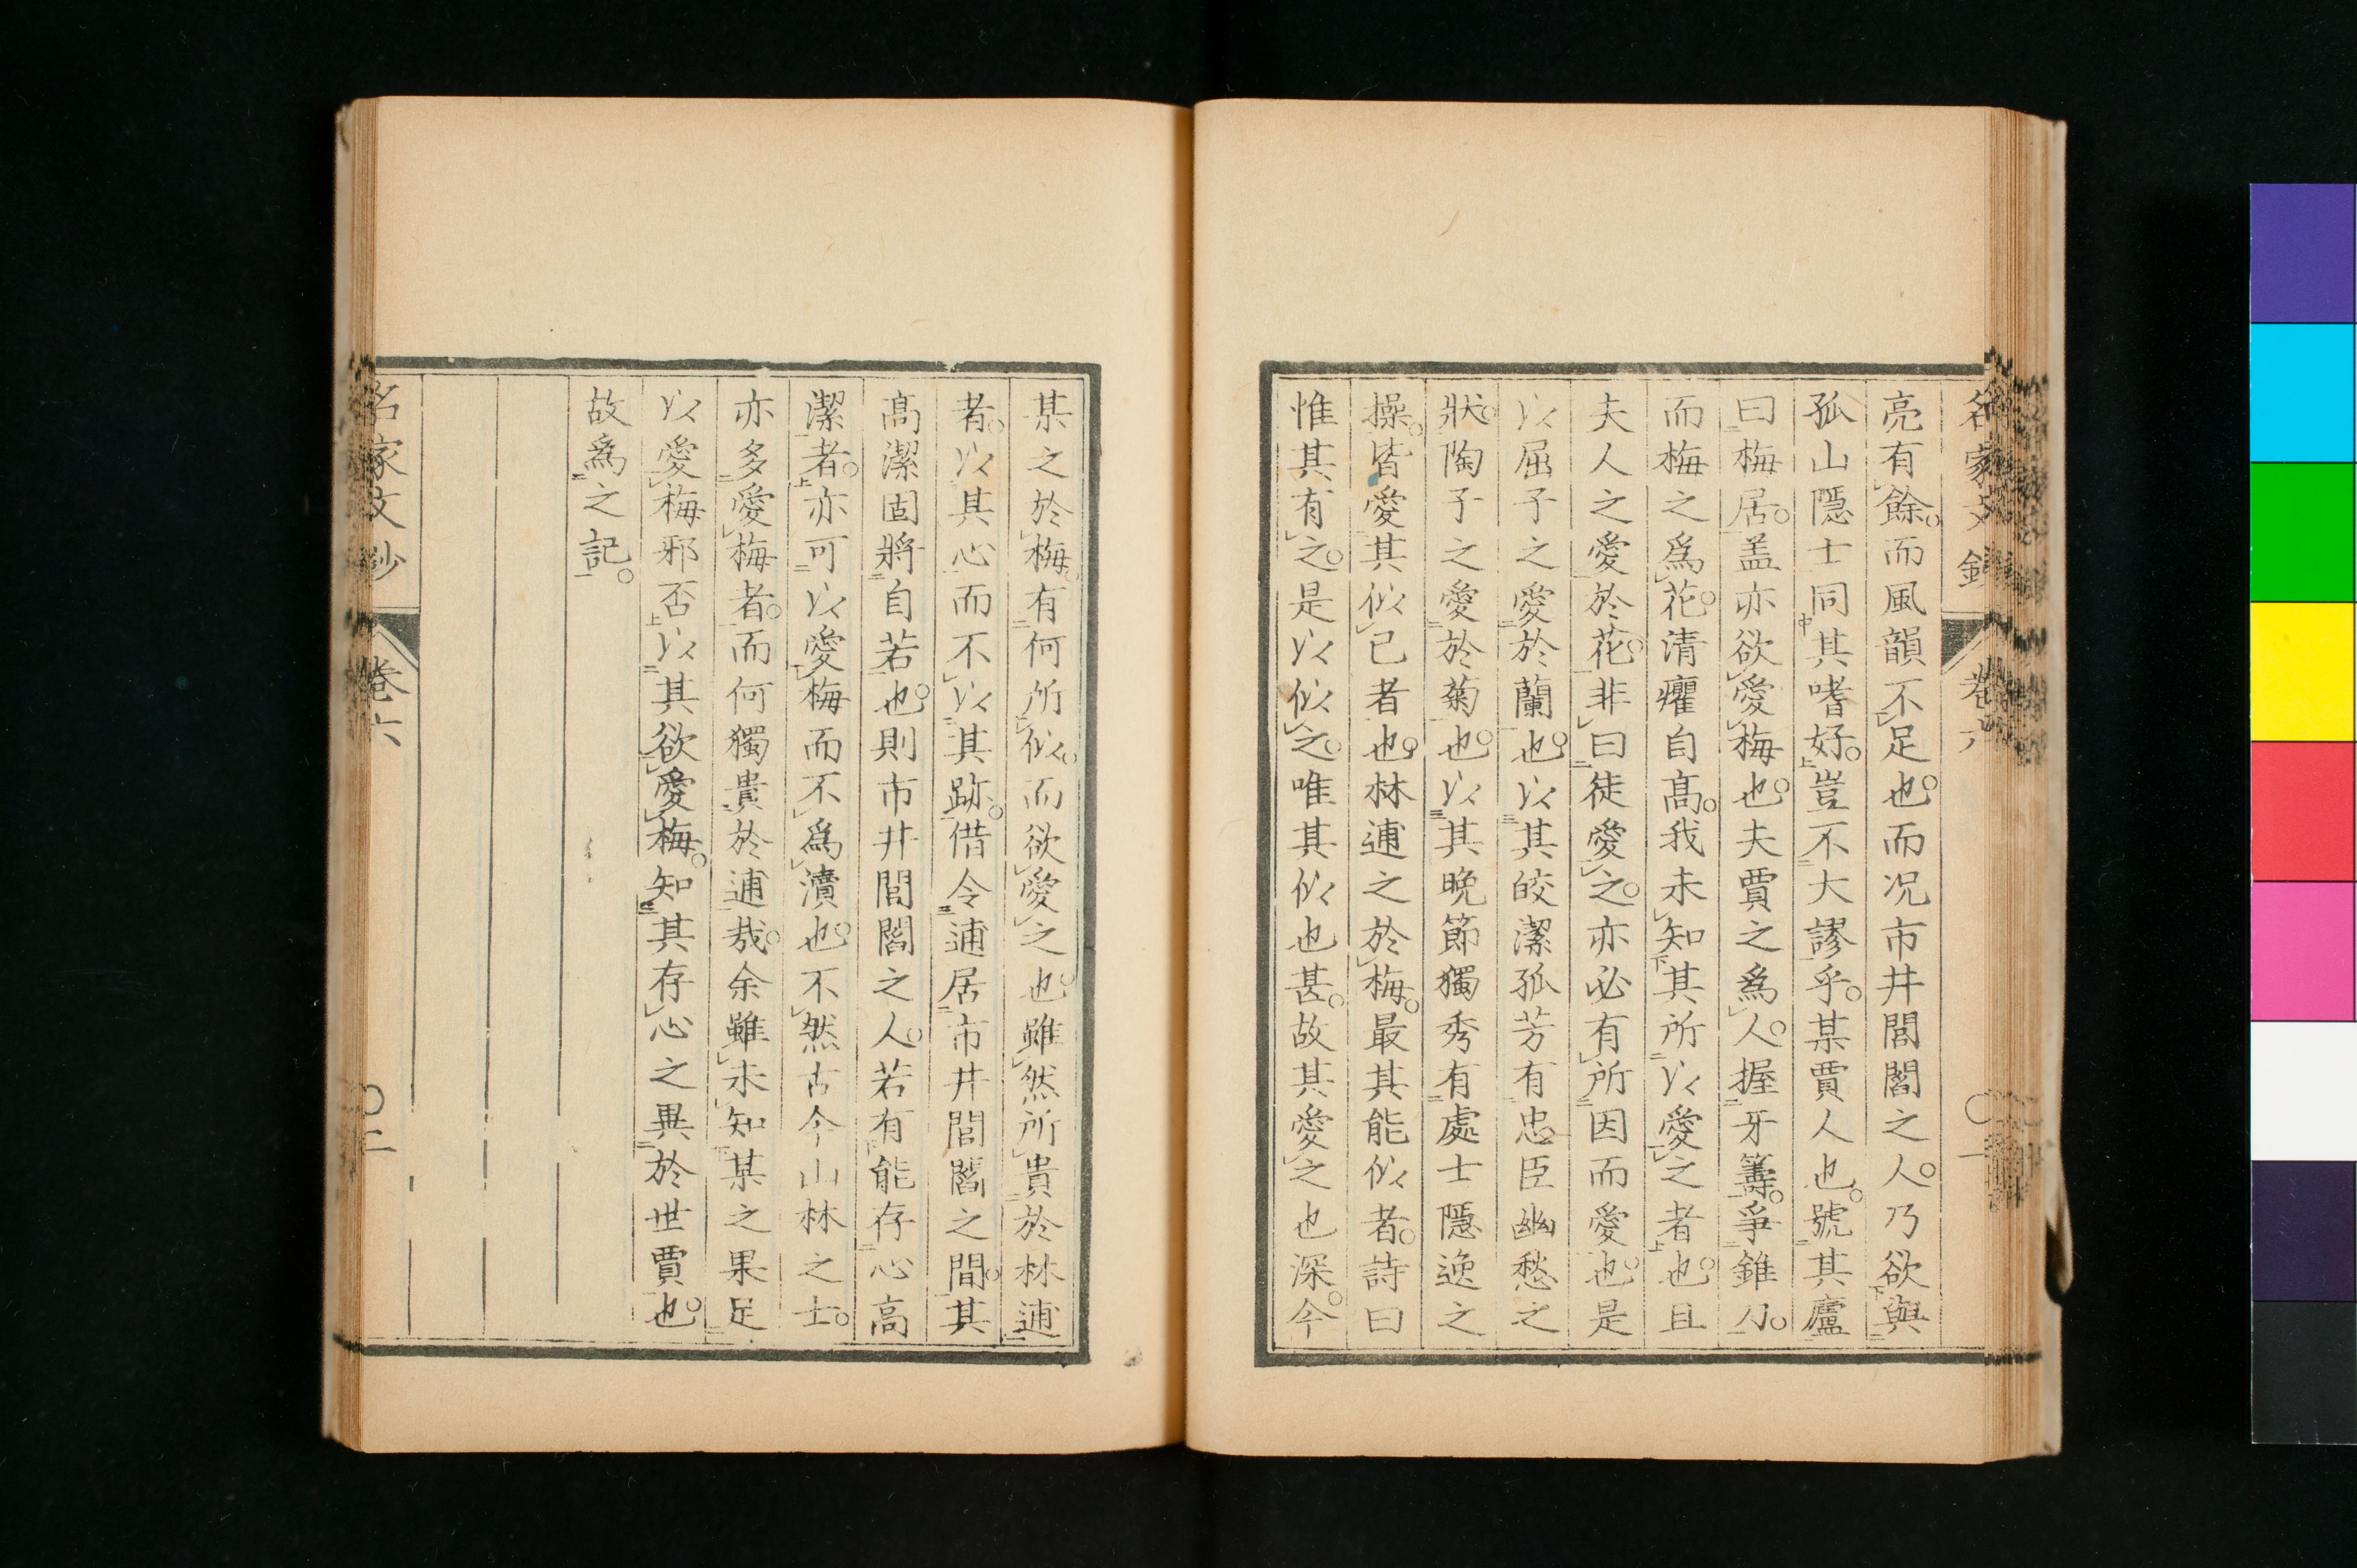 名家文鈔
卷六
亮有餘。而風韻不足也。而况市井閭閻之人。乃欲與
孤山隱士同其嗜好。豈不大謬乎。某賈人也。號其廬
曰梅居。盖亦欲愛梅也。夫賈之爲人。握牙籌。爭錐刀。
而梅之爲花。清癯自高。我未知其所以愛之者也。且
夫人之愛於花。非曰徒愛之。亦必有所因而愛也。是
以屈子之愛於蘭也。以其皎潔孤芳有忠臣幽愁之
狀。陶子之愛於菊也。以其晚節獨秀有處士隱逸之
操。皆愛其似已者也。林逋之於梅。最其能似者。詩曰
惟其有之。是以似之。唯其似也甚。故其愛之也深。今
某之於梅。有何所似。而欲愛之也。雖然所貴於林逋
者。以其心而不以其跡。借令逋居市井閭閻之間。其
高潔固將自若也。則市井閭閻之人。若有能存心高
潔者。亦可以愛梅而不爲瀆也。不然古今山林之士。
亦多愛梅者。而何獨貴於逋哉。余雖未知某之果足
以愛梅邪否以其欲愛梅。知其存心之異於世賈也。
故爲之記。
名家文鈔
卷六
〇二